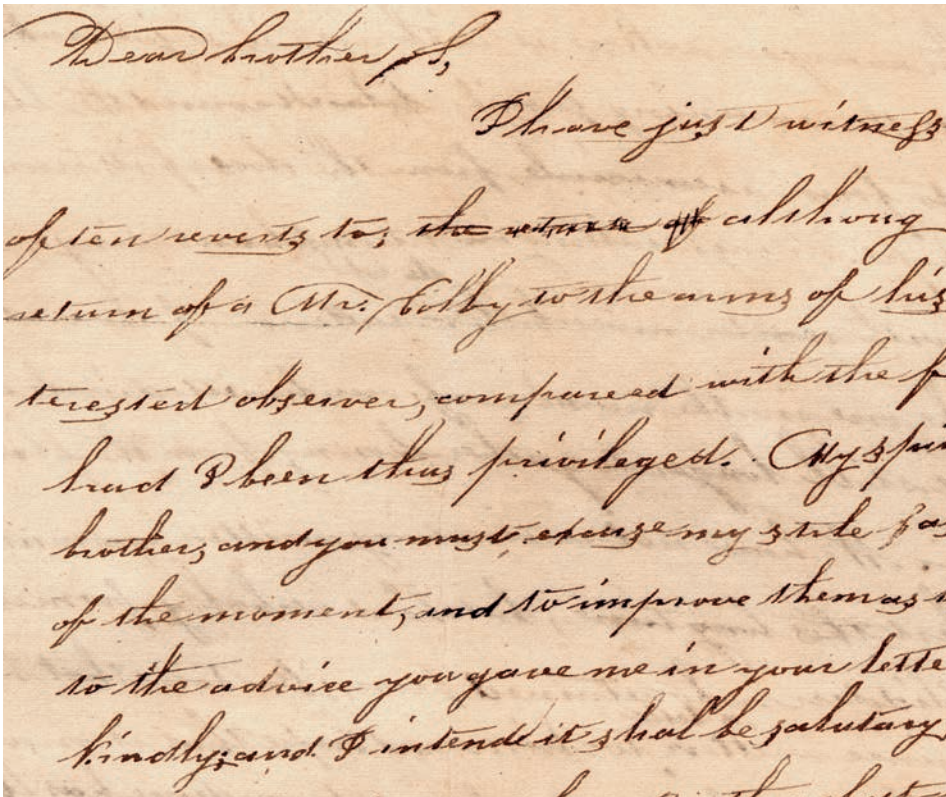 Dear brother S,
I have just witness
often reverts to; the return of althoug
return of a Mr. Colby to the arms of his
terested observer, compared with the f
had I been thus privileged. My spi
brother, and you must, excuse my stile
of the moment, and to improve them as
to the advice you gave me in your lette
kindly; and I intend it shal be salutary